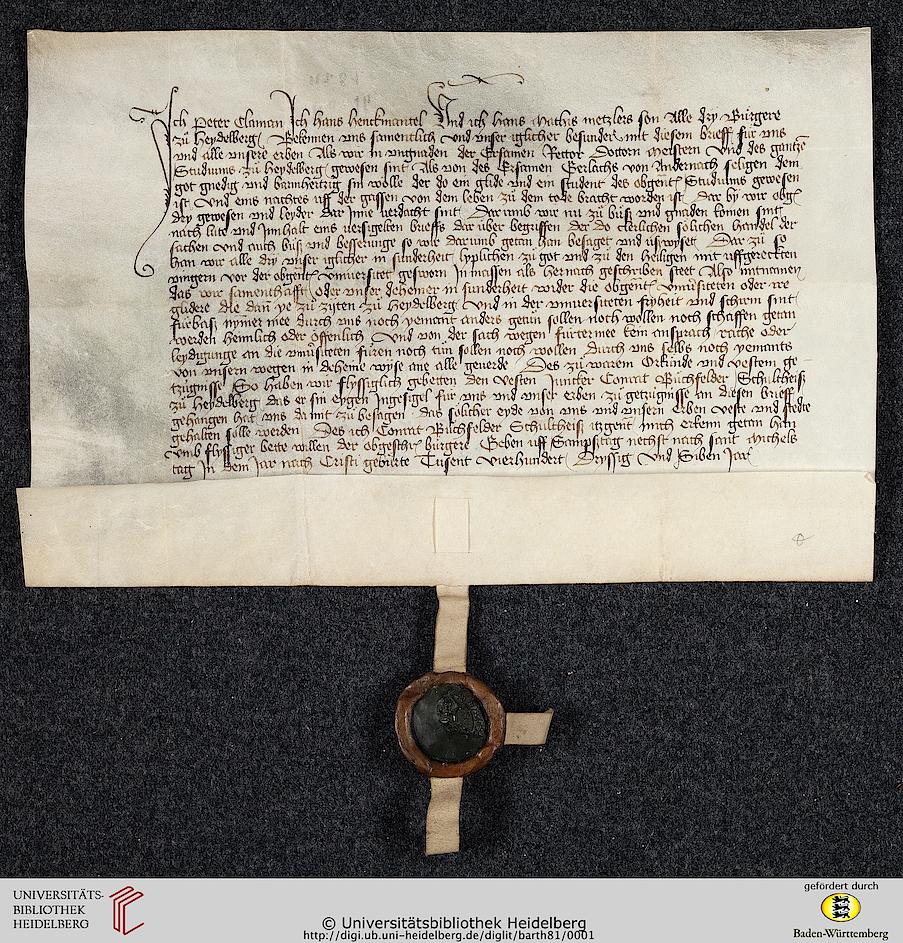 Ich Peter Claman Ich hans henckmantel Und ich hans Mathis metzlers son Alle dry Burgere
zů Heydelberg Bekennen uns samentlich Und unser iglicher besunder mit diesem brieff fur uns
und alle unsere erben Als wir in ungnaden der Ersamen Rector Doctorn meistern Und des gantzē
Studiums zů Heydelberg gewesen sint Als von des Ersamen Gerlachs von Andernach seligen dem
got gnedig und barmhertzig sin wolle der do ein glide und ein student des obgent Studiums gewesen
ist Und eins nachtes uff der gassen von dem leben zů dem tode bracht worden ist Dar by wir obg
dry gewesen und leyder dar Inne verdacht sint Dar umb wir nu zů bůß und gnaden komen sint
nach lute und Innhalt eins versigelten brieffs dar uber begriffen der do clerlichen solichen handel der
sachen und auch bůß und besserunge so wir darumb getan han besaget und ußwyset Dar zů so
han wir alle dry unser iglicher in sunderheit lyplichen zů got und zů den heiligen mit uffgereckten
vingern vor der obgent universitet gesworn In massen als hernach geschriben steet Also mitnamen
das wir samenthafft Oder unser deheiner in sunderheit wider die obgent universiteten oder ire
glidere die dan ye zů zyten zů Heydelberg Und in der universiteten fryheit und schirm sint
furbaß nymer mee durch uns noch yemant anders getůn sollen noch wollen noch schaffen getan
werden heimlich oder offentlich Und von der sach wegen furtermee kein ansprach rache oder
leydigunge an die universiteten fůren noch tůn sollen noch wollen durch uns selbs noch yemants
von unsern wegen in deheine wyse ane alle geverde Des zů warem Orkunde und vestem ge-
tzůgnisse So haben wir flyssiglich gebetten den vesten Juncker Conrat Půchfelder Schultheiß
zů Heydelberg das er sin eygen Ingesigel fur uns und unser erben zů getzugnisse an diesen brieff
gehangen hat uns da mit zů besagen das solicher eyde von uns und unsern erben veste und stedte
gehalten solle werden Des ich Conrat Půchfelder Schultheiß itzgent mich erkenn getan han
umb flyssiger bette willen der obgeschr burgere Geben uff Sampßtag nechst nach sant Michels
tag In dem Jar nach Cristi gebůrte Tusent vierhundert Dryssig Und Siben Jar
UNIVERSITÄTS-
BIBLIOTHEK
HEIDELBERG
© Universitätsbibliothek Heidelberg
http://digi.ub.uni-heidelberg.de/diglit/barth81/0001
gefördert durch
Baden-Württemberg